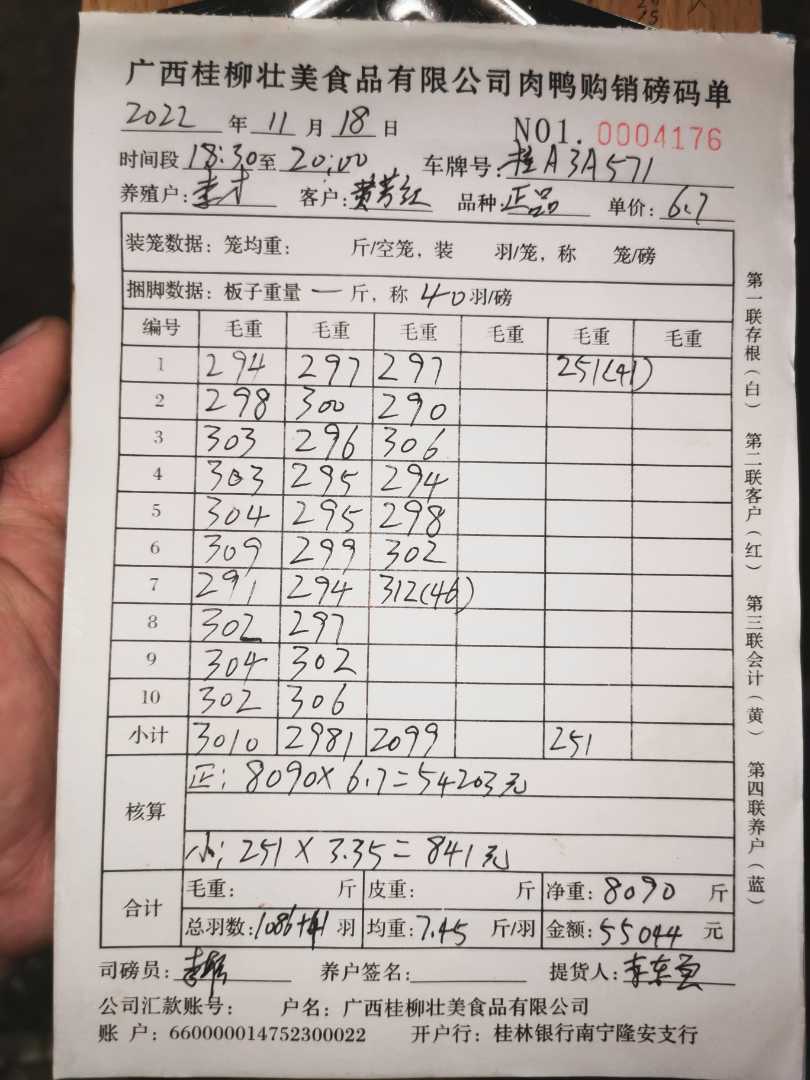 广西桂柳壮美食品有限公司肉鸭购销磅码单
2022 年 11 月 18 日 NO1. 0004176
时间段 18:30 至 20:00 车牌号: 桂A3A571
养殖户: 客户: 黄芳红 品种: 正品 单价: 6.7
装笼数据: 笼均重: 斤/空笼, 装 羽/笼, 称 笼/磅
捆脚数据: 板子重量 一 斤, 称 40 羽/磅
编号 毛重 毛重 毛重 毛重 毛重 毛重
1 294 297 297 251(41)
2 298 300 290
3 303 296 306
4 303 295 294
5 304 295 298
6 309 299 302
7 291 294 312(46)
8 302 297
9 304 302
10 302 306
小计 3010 2981 2099 251
核算
正: 8090×6.7=54203元
小; 251×3.35=841元
合计
毛重: 斤 皮重: 斤 净重: 8090 斤
总羽数: 1086+41 羽 均重: 7.45 斤/羽 金额: 55044 元
司磅员: 养户签名: 提货人:
公司汇款账号: 户名: 广西桂柳壮美食品有限公司
账 户: 660000014752300022 开户行: 桂林银行南宁隆安支行
第一联存根(白) 第二联客户(红) 第三联会计(黄) 第四联养户(蓝)